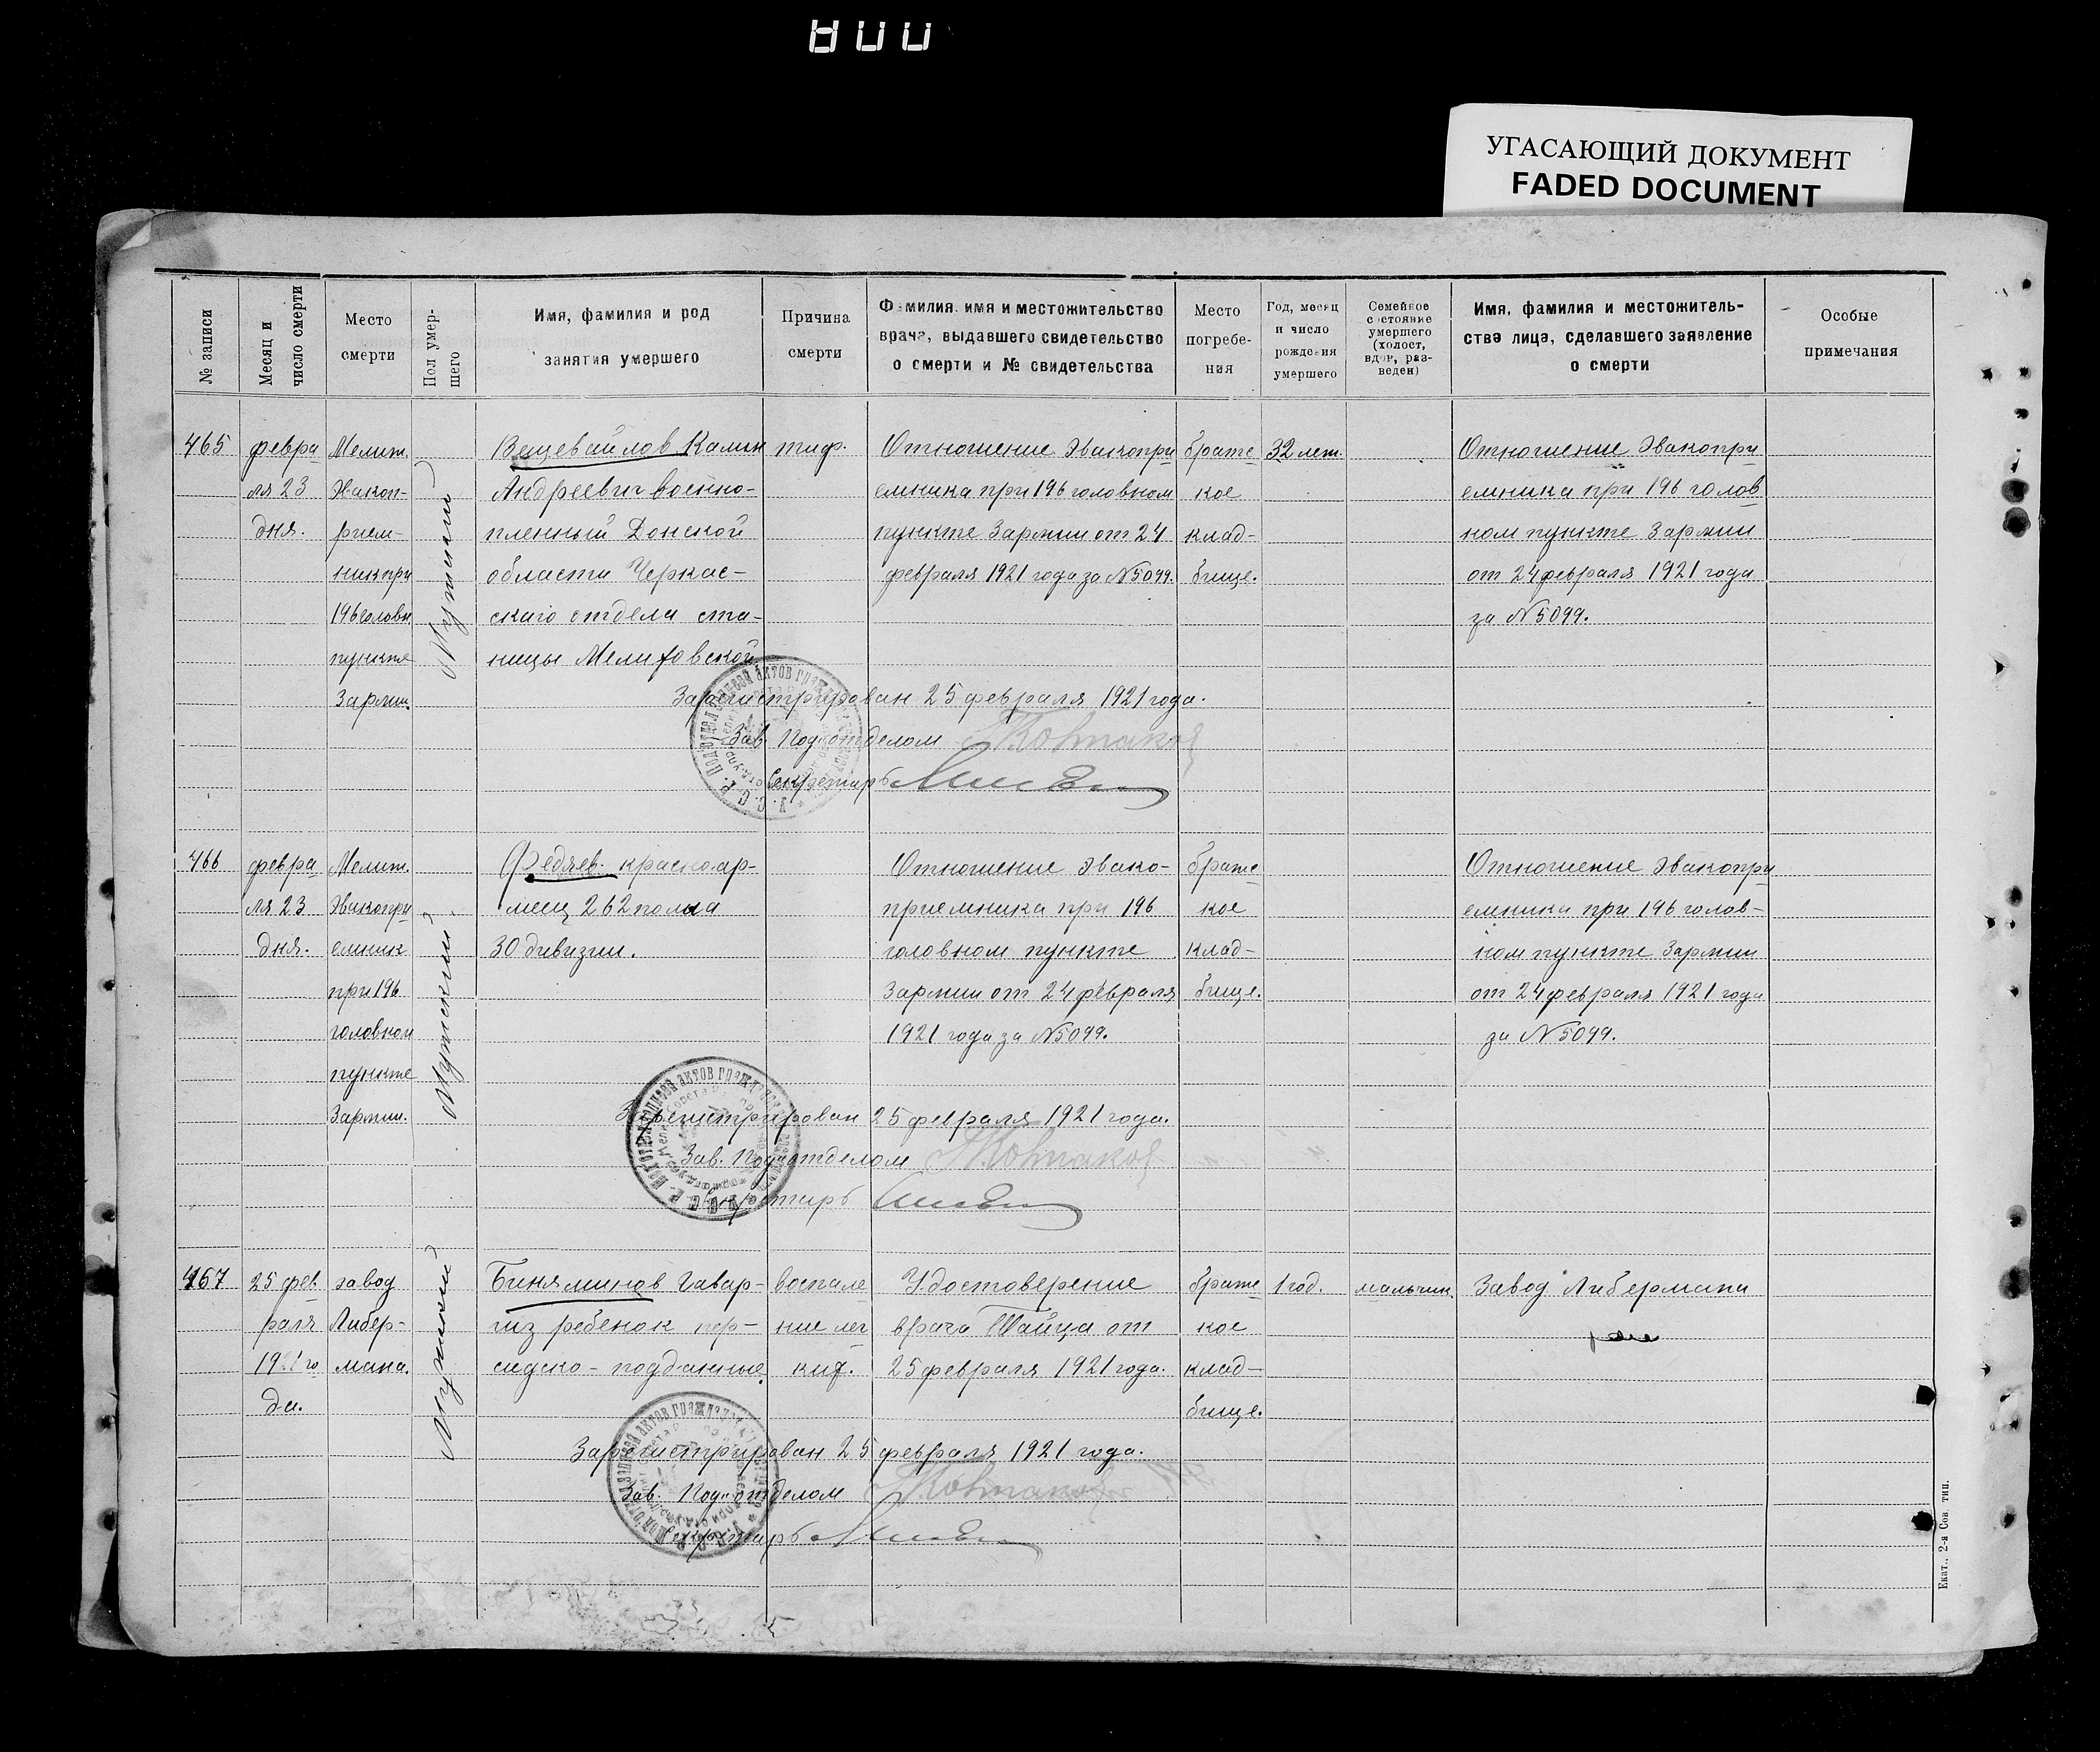 800
УГАСАЮЩИЙ ДОКУМЕНТ
FADED DOCUMENT
№ записи
Месяц и
число смерти
Место
смерти
Пол умер-
шего
Имя, фамилия и род
занятия умершего
Причина
смерти
Фамилия, имя и местожительство
врача, выдавшего свидетельство
о смерти и № свидетельства
Место
погребе-
ния
Год, месяц
и число
рождения
умершего
Семейное
состояние
умершего
(холост,
вдов, раз-
веден)
Имя, фамилия и местожитель-
ства лица, сделавшего заявление
о смерти
Особые
примечания
465
февра
ля 23
дня.
Мелит.
Эвакоп-
рием-
ник при
196 головн
пункте
3 армии.
Мужской
Калин
Андреевич военно-
пленный Донской
области Черкас-
ского отдела ста-
ницы
тиф.
Отношение Эвакопри
емника при 196 головном
пункте 3 армии от 24
февраля 1921 года за № 5099.
братс
кое
клад-
бище.
32 лет.
Отношение Эвакопри
емника при 196 голов
ном пункте 3 армии
от 24 февраля 1921 года
за № 5099.
Зарегистрирован 25 февраля 1921 года.
Зав. Под'отделом
Секретарь
466
февра
ля 23
дня.
Мелит.
Эвакопри
емник
при 196
головном
пункте
3 армии.
Мужский.
Федяев. красноар-
меец 262 полка
30 дивизии.
Отношение Эвако-
приемника при 196
головном пункте
3 армии от 24 февраля
1921 года за № 5099.
братс
кое
клад-
бище.
Отношение Эвакопри
емника при 196 голов-
ном пункте 3 армии
от 24 февраля 1921 года
за № 5099.
Зарегистрирован 25 февраля 1921 года.
Зав. Под'отделом
Секретарь
467
25 фев.
раля
1921 го
да.
завод
Либер-
мана.
Мужский
Биняминов Гавар-
гиз ребенок пер-
сидско-подданные.
воспале
ние лег
ких.
Удостоверение
врача Тайца от
25 февраля 1921 года.
братс
кое
клад-
бище.
1 год.
мальчик.
Завод Либермана
Зарегистрирован 25 февраля 1921 года.
Зав. Под'отделом
Секретарь
Екат., 2-я Сов тип.